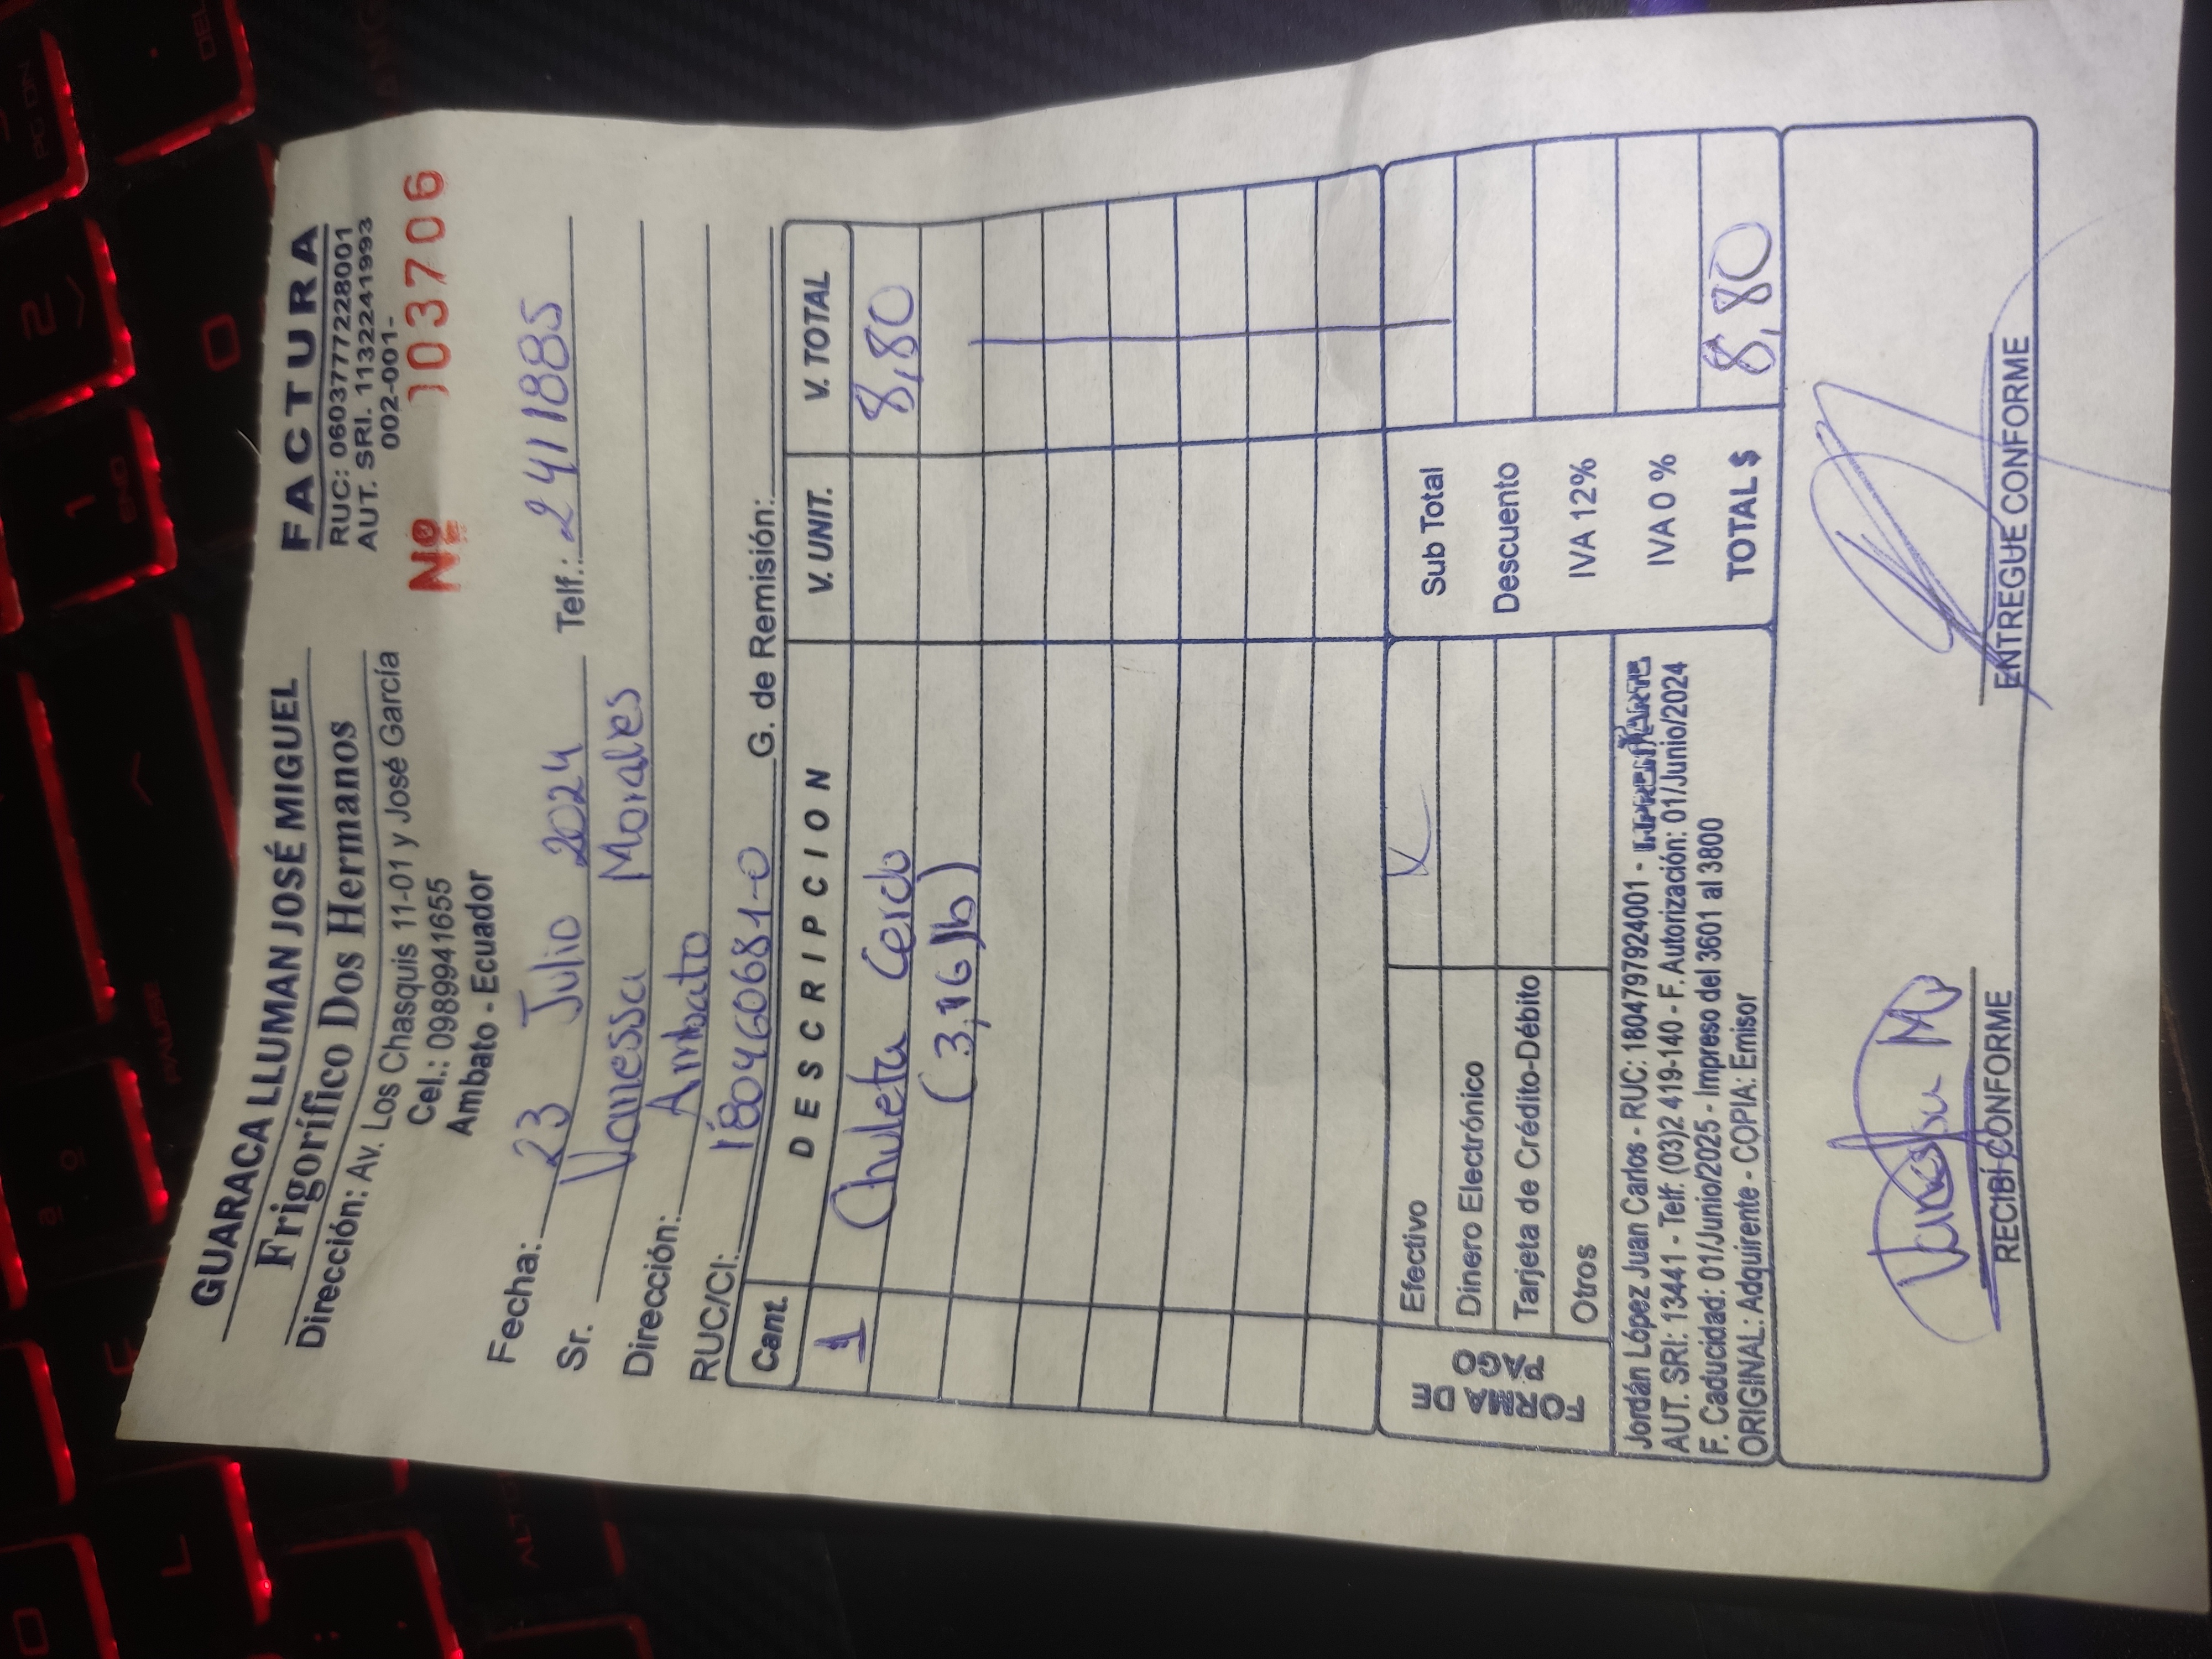 GUARACA LLUMAN JOSÉ MIGUEL
Frigorífico Dos Hermanos
Dirección: Av. Los Chasquis 11-01 y José García
Cel.: 0989941655
Ambato - Ecuador
FACTURA
RUC: 0603777228001
AUT. SRI. 1132241993
002-001-
Nº 003706
Fecha: 23 Julio 2024 Telf.: 2411885
Sr. Vanessa Morales
Dirección: Ambato
RUC/CI: 180460681-0 G. de Remisión:
Cant. DESCRIPCION V. UNIT. V. TOTAL
1 Chuleta Cerdo 8,80
(3,16 lb)
FORMA DE PAGO
Efectivo X
Dinero Electrónico
Tarjeta de Crédito-Débito
Otros
Sub Total
Descuento
IVA 12%
IVA 0 %
TOTAL $ 8,80
Jordán López Juan Carlos - RUC: 1804797924001 - IMPRENTARTE
AUT. SRI: 13441 - Telf: (03)2 419-140 - F. Autorización: 01/Junio/2024
F. Caducidad: 01/Junio/2025 - Impreso del 3601 al 3800
ORIGINAL: Adquirente - COPIA: Emisor
Vanessa M
RECIBÍ CONFORME
ENTREGUE CONFORME
L
PAUSE
1
END
2
PG DN
0
DEL